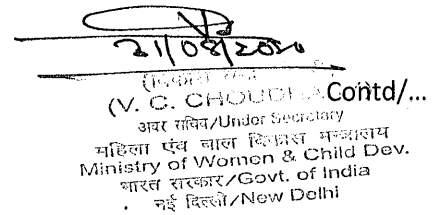 21/04/2020
Contd/...
(V. C.
अवर सचिव/Under Secretary
महिला एंव बाल विकास मन्त्रालय
Ministry of Women & Child Dev.
भारत सरकार/Govt. of India
नई दिल्ली/New Delhi